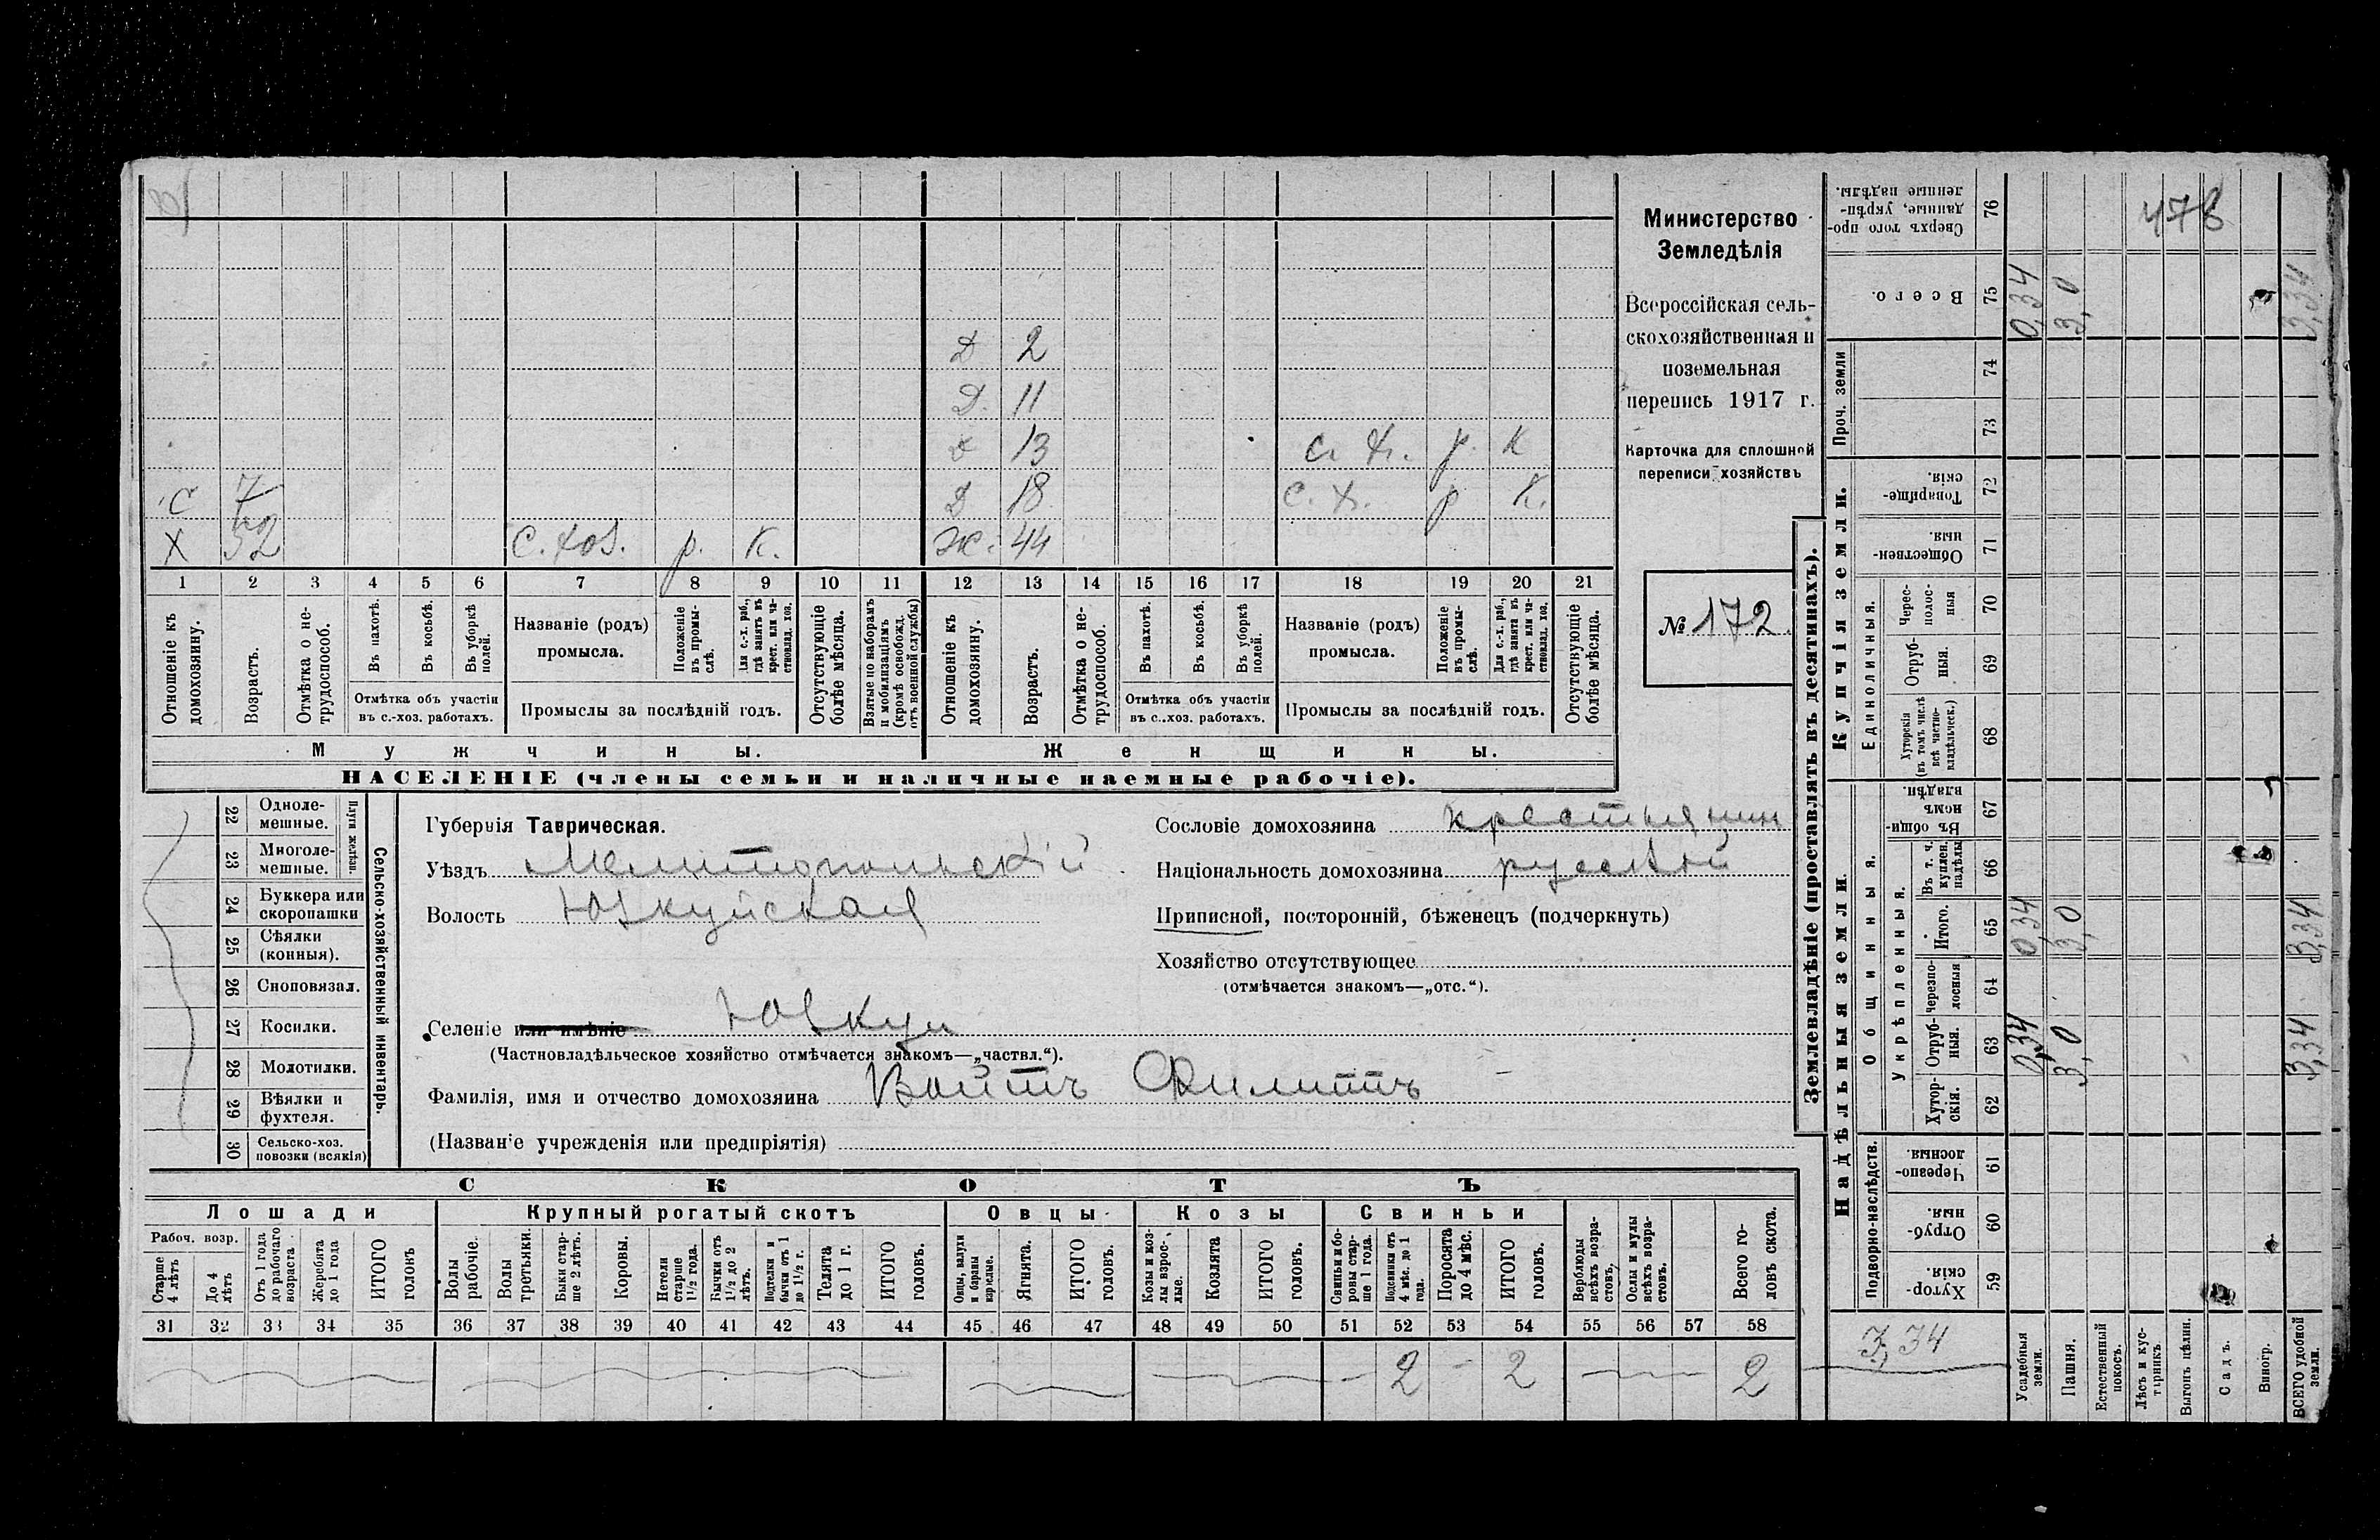 478
Д 2
Д. 11
д 13 с. х. р. К
С 7 Д 18 с. х. р К.
Х 52 С. хоз. р. К. Ж. 44
1 2 3 4 5 6 7 8 9 10 11 12 13 14 15 16 17 18 19 20 21
Отношеніе къ домохозяину.
Возрастъ.
Отмѣтка о не-трудоспособ.
Въ пахотѣ.
Въ косьбѣ.
Въ уборкѣ полей.
Отмѣтка объ участіи
въ с.-хоз. работахъ.
Названіе (родъ)
промысла.
Положеніе въ промы-слѣ.
Для с.-х. раб., гдѣ занятъ въ крест. или ча-ствовлад. хоз.
Промыслы за послѣдній годъ.
Отсутствующіе болѣе мѣсяца.
Взятые по наборамъ и мобилизаціямъ (кромѣ освобожд. отъ военной службы)
Отношеніе къ домохозяину.
Возрастъ.
Отмѣтка о не-трудоспособ.
Въ пахотѣ.
Въ косьбѣ.
Въ уборкѣ полей.
Отмѣтка объ участіи
въ с..хоз. работахъ.
Названіе (родъ)
промысла.
Положеніе въ промы-слѣ.
Для с.-х. раб., гдѣ занята въ крест. или ча-ствовлад. хоз.
Промыслы за послѣдній годъ.
Отсутствующіе болѣе мѣсяца.
Мужчины.
Женщины.
НАСЕЛЕНІЕ (члены семьи и наличные наемные рабочіе).
Министерство
Земледѣлія
Всероссійская сель-
скохозяйственная и
поземельная
перепись 1917 г.
Карточка для сплошной
переписи хозяйствъ
№ 172.
22 Одноле-мешные.
23 Многоле-мешные.
Плуги желѣзн.
24 Буккера или скоропашки
25 Сѣялки (конныя).
26 Сноповязал.
27 Косилки.
28 Молотилки.
29 Вѣялки и фухтеля.
30 Сельско-хоз. повозки (всякія)
Сельско-хозяйственный инвентарь.
Губернія Таврическая.
Уѣздъ Мелитопольскій
Волость Юзкуйская
Селеніе или имѣніе Юзкуи
(Частновладѣльческое хозяйство отмѣчается знакомъ—„частвл.“).
Фамилія, имя и отчество домохозяина Войтъ Филиппъ
(Названіе учрежденія или предпріятія)
Сословіе домохозяина крестьянин
Національность домохозяина русскій
Приписной, посторонній, бѣженецъ (подчеркнуть)
Хозяйство отсутствующее
(отмѣчается знакомъ—„отс.“).
СКОТЪ
Лошади
Крупный рогатый скотъ
Овцы
Козы
Свиньи
Рабоч. возр.
Старше 4 лѣтъ
До 4 лѣтъ
Отъ 1 года до рабочаго возраста
Жеребята до 1 года
ИТОГО головъ
Волы рабочіе.
Волы третьяки.
Быки стар-ше 2 лѣтъ.
Коровы.
Нетели старше 1½ года.
Бычки отъ 1½ до 2 лѣтъ.
Подтелки и бычки отъ 1 до 1½ г.
Телята до 1 г.
ИТОГО головъ.
Овцы, валухи и бараны взрослые.
Ягнята.
ИТОГО головъ.
Козы и коз-лы взрос-лые.
Козлята
ИТОГО головъ.
Свиньи и бо-ровы стар-ше 1 года.
Подсвинки отъ 4 мѣс. до 1 года.
Поросята до 4 мѣс.
ИТОГО головъ.
Верблюды всѣхъ возра-стовъ.
Ослы и мулы всѣхъ возра-стовъ.
Всего го-ловъ скота.
31 32 33 34 35 36 37 38 39 40 41 42 43 44 45 46 47 48 49 50 51 52 53 54 55 56 57 58
2 - 2 2
Землевладѣніе (проставлять въ десятинахъ).
Купчія земли.
Надѣльныя земли.
Проч. земли
Единоличныя.
Общинныя.
Укрѣпленныя.
Подворно-наслѣдств.
Сверхъ того про-данные, укрѣп-ленные надѣлы. 76
Всего. 75 0,34 3,0 3,34
74
73
Товарище-скія 72
Обществен-ныя 71
Черес-полос-ныя 70
Отруб-ныя. 69
Хуторскія (въ томъ числѣ всѣ частно-владѣльческ.) 68
Въ общи-номъ владѣн. 67
Въ т. ч. куплен. надѣлы 66
Итого. 65 0,34 3,0 3,34
Черезпо-лосныя 64
Отруб-ныя. 63 0,34 3,0 3,34
Хутор-скія. 62
Черезпо-лосныя. 61
Отруб-ныя. 60
Хутор-скія. 59
3,34
Усадебныя земли.
Пашня.
Естественный покосъ.
Лѣсъ и кус-тарникъ
Выгонъ цѣлин.
Садъ.
Виногр.
ВСЕГО удобной земли.